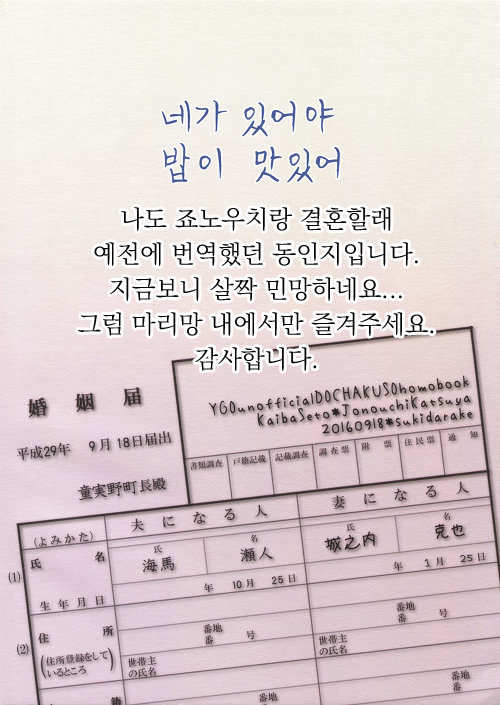 네가 있어야
밥이 맛있어
나도 죠노우치랑 결혼할래
예전에 번역했던 동인지입니다.
지금보니 살짝 민망하네요...
그럼 마리망 내에서만 즐겨주세요.
감사합니다.
婚姻届
平成29年 9月18日届出
童実野町長殿
YGOunofficialDOCHAKUSOhomobook
KaibaSeto*JonouchiKatsuya
20160918*sukidarake
書類調査 戸籍記載 記載調査 調査票 附票 住民票 通知
夫になる人 妻になる人
(よみかた) 氏 名 氏 名
(1) 氏名 海馬 瀬人 城之内 克也
生年月日 年 10月 25日 年 1月 25日
(2) 住所 番地 番 号 番地 番 号
(住所登録をしているところ) 世帯主の氏名 世帯主の氏名
籍 番地 番地 番